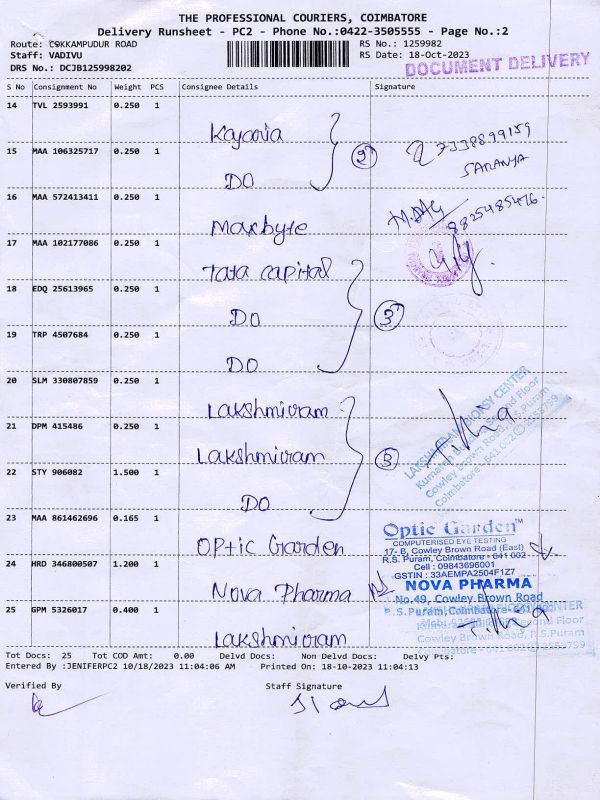 THE PROFESSIONAL COURIERS, COIMBATORE
Delivery Runsheet - PC2 - Phone No.:0422-3505555 - Page No.:2
Route: COKKAMPUDUR ROAD
RS No.: 1259982
Staff: VADIVU
RS Date: 18-Oct-2023
DRS No.: DCJB125998202
DOCUMENT DELIVERY
S No Consignment No Weight PCS Consignee Details Signature
14 TVL 2593991 0.250 1
Kajaria
2 7338899159
15 MAA 106325717 0.250 1
SARANYA
DO
16 MAA 572413411 0.250 1
Maxbyte
8825485476.
17 MAA 102177086 0.250 1
Tata capital
18 EDQ 25613965 0.250 1
DO 3
19 TRP 4507684 0.250 1
DO
20 SLM 330807859 0.250 1
Lakshmiram
21 DPM 415486 0.250 1
LAKSHMIRAM BIOPSY CENTER
Second Floor
Cowley Brown Road, R.S.Puram
Coimbatore - 641 002
Lakshmiram 3
22 STY 906082 1.500 1
DO
23 MAA 861462696 0.165 1
Optic Garden
Optic Garden™
COMPUTERISED EYE TESTING
17- B, Cowley Brown Road (East)
R.S. Puram, Coimbatore - 641 002
Cell : 09843696001
GSTIN : 33AEMPA2504F1Z7
24 HRD 346800507 1.200 1
Nova Pharma
NOVA PHARMA
No.49, Cowley Brown Road
R.S.Puram, Coimbatore
25 GPM 5326017 0.400 1
Second Floor
Cowley Brown Road, R.S.Puram
Lakshmiram
Tot Docs: 25 Tot COD Amt: 0.00 Delvd Docs: Non Delvd Docs: Delvy Pts:
Entered By :JENIFERPC2 10/18/2023 11:04:06 AM Printed On: 18-10-2023 11:04:13
Verified By Staff Signature